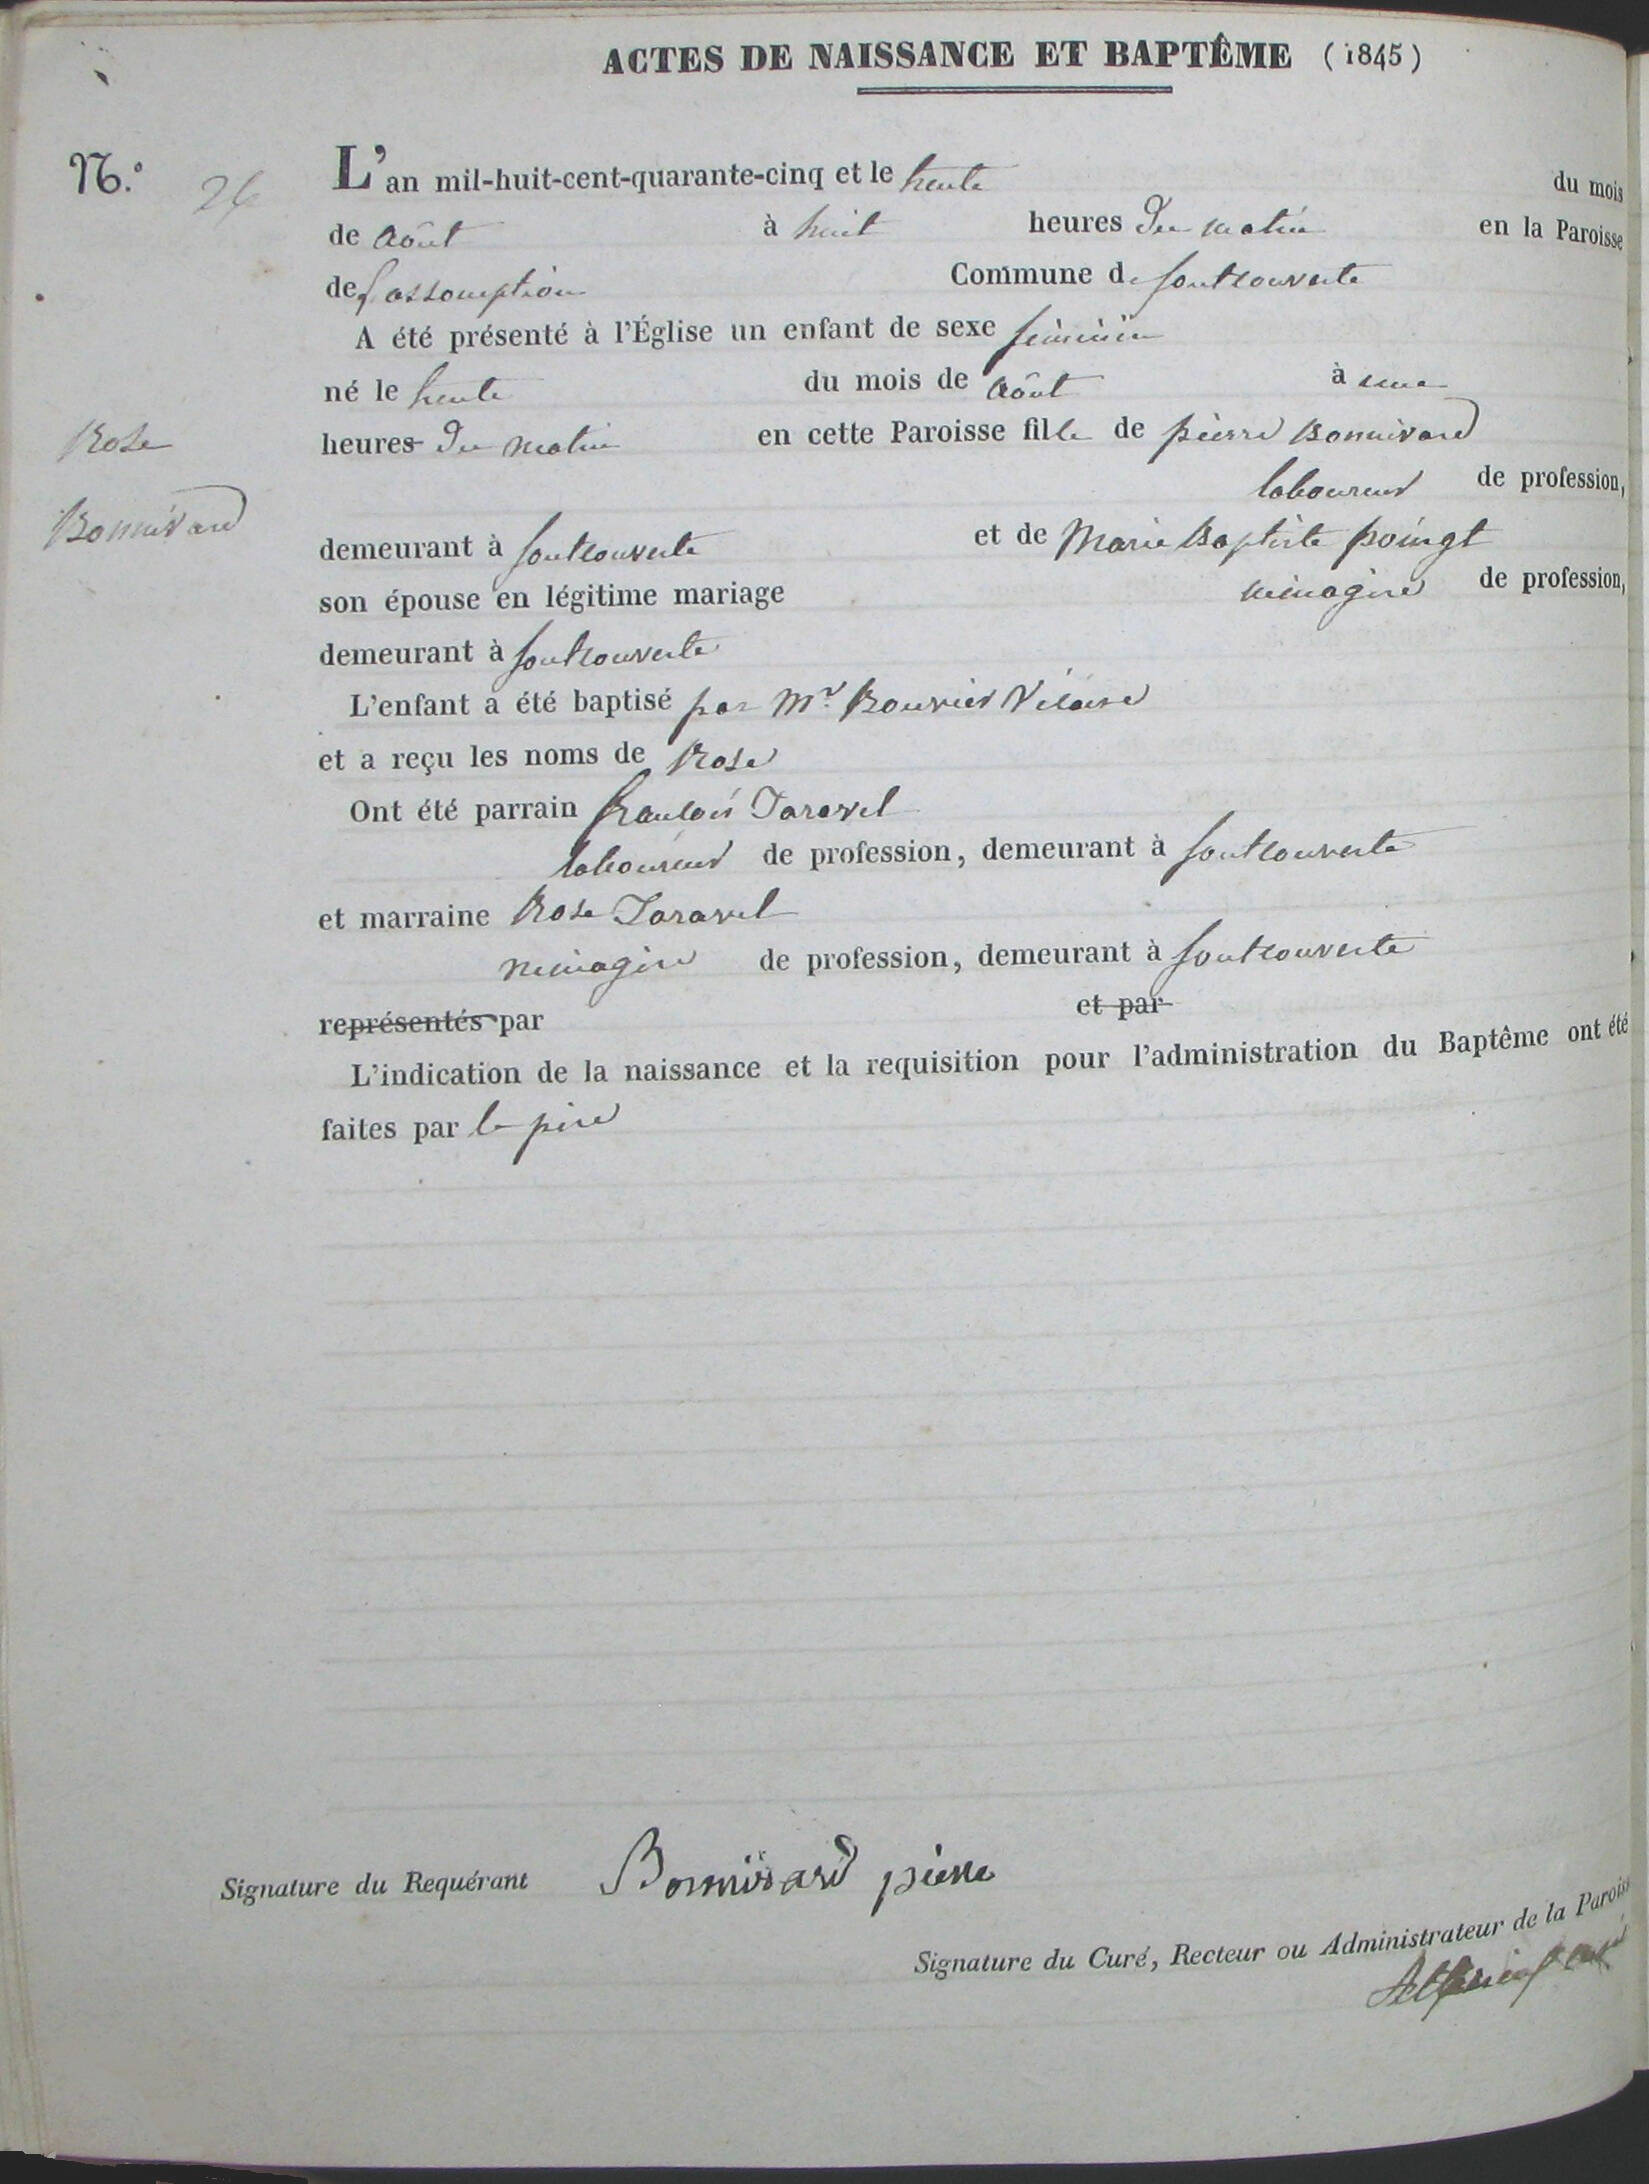 ACTES DE NAISSANCE ET BAPTÊME (1845)
N.° 26
L'an mil-huit-cent-quarante-cinq et le trente du mois
de Août à huit heures du matin en la Paroisse
de l'assomption Commune de fontcouverte
A été présenté à l'Église un enfant de sexe féminin
né le trente du mois de Août à une
Rose
heures du matin en cette Paroisse fille de pierre Bonnivard
laboureur de profession,
Bonnivard
demeurant à fontcouverte et de Marie Baptiste poingt
son épouse en légitime mariage ménagère de profession,
demeurant à fontcouverte
L'enfant a été baptisé par Mr Bouvier Vicaire
et a reçu les noms de Rose
Ont été parrain françois Taravel
laboureur de profession, demeurant à fontcouverte
et marraine Rose Taravel
ménagère de profession, demeurant à fontcouverte
représentés par et par
L'indication de la naissance et la requisition pour l'administration du Baptême ont été
faites par le père
Signature du Requérant Bonnivard pierre
Signature du Curé, Recteur ou Administrateur de la Paroiss